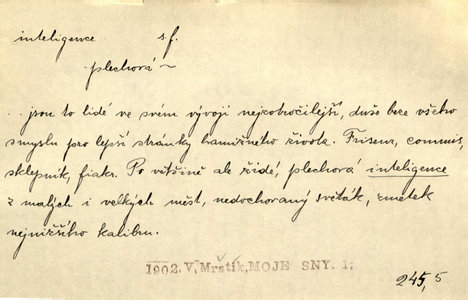 inteligence s.f.
plechová ~
.. jsou to lidé ve svém vývoji nejzobročilejší, duše beze všeho
smyslu pro lepší stránky hamižného života. Friseur, commis,
sklepník, fiakr. Po většině ale řídé, plechová inteligence
z malých i velkých měst, nedochovaný světák, zmetek
nejnižšího kalibru.
1902. V. Mrštík, MOJE SNY. 1;
245,5